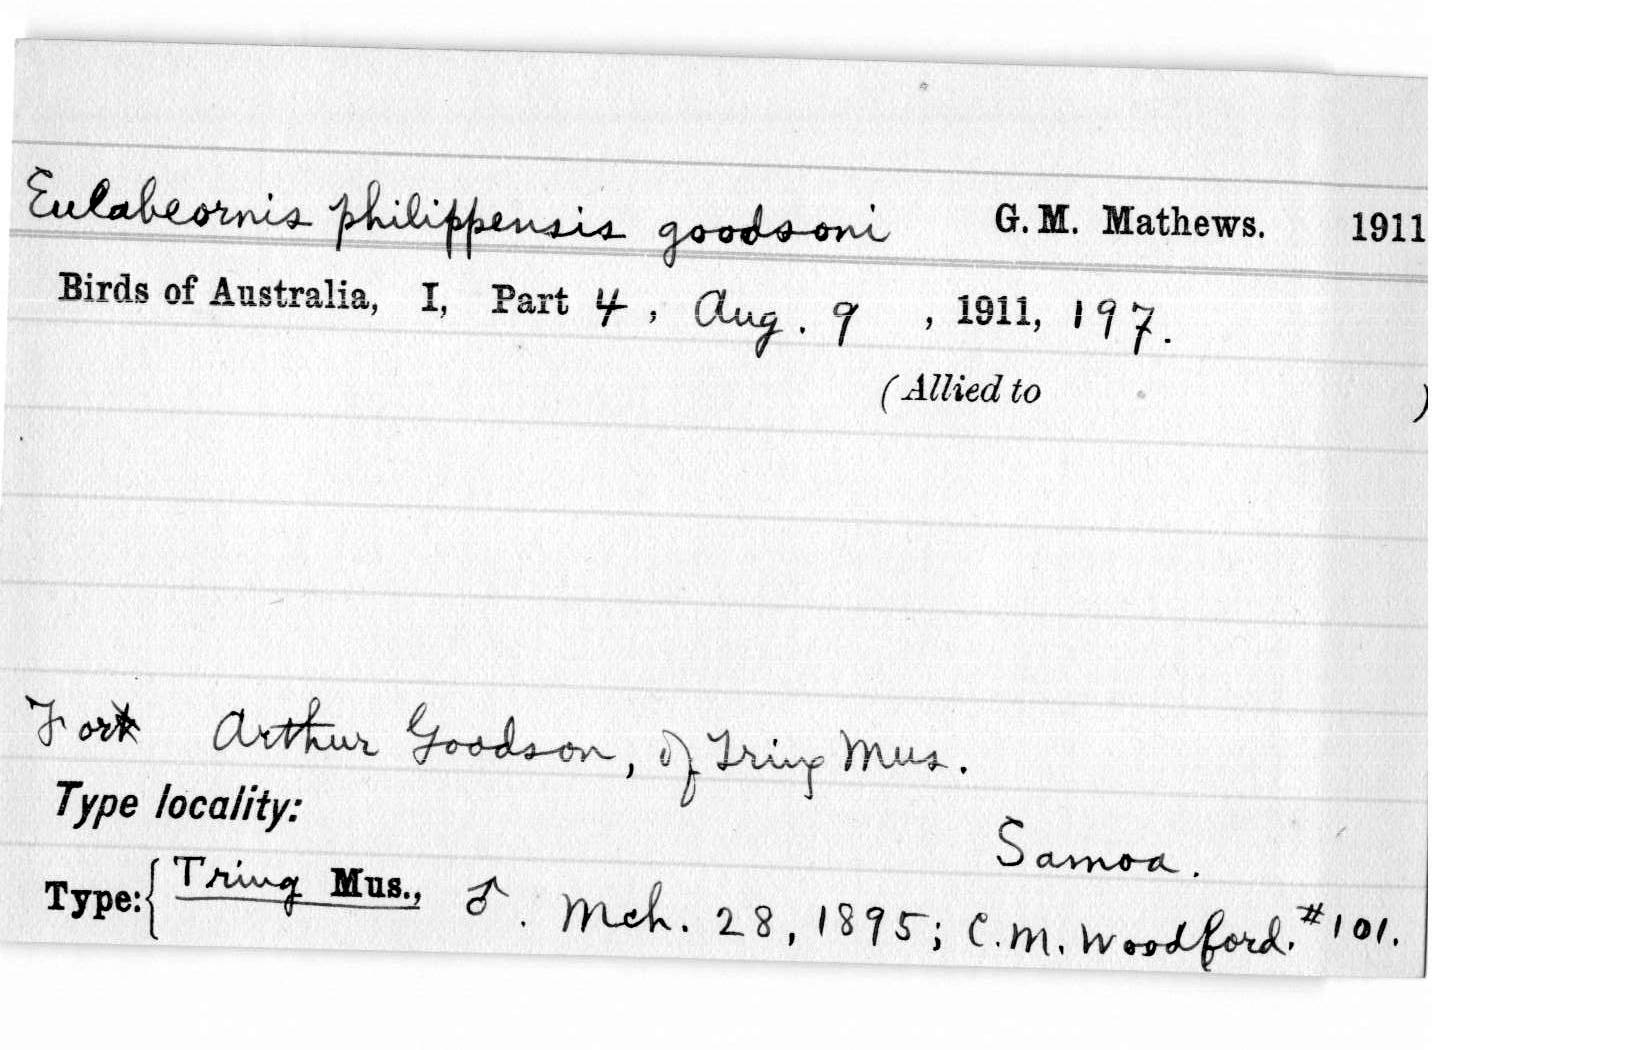 Eulabeornis philippensis goodsoni G. M. Mathews. 1911
Birds of Australia, I, Part 4, Aug. 9, 1911, 197.
(Allied to )
For Arthur Goodson, of Tring Mus.
Type locality:
Samoa.
Type: { Tring Mus., ♂. Mch. 28, 1895; C. M. Woodford. #101.